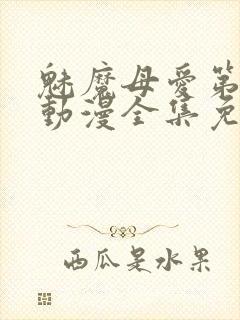 魅魔母愛第
動漫全集免
西瓜是水果